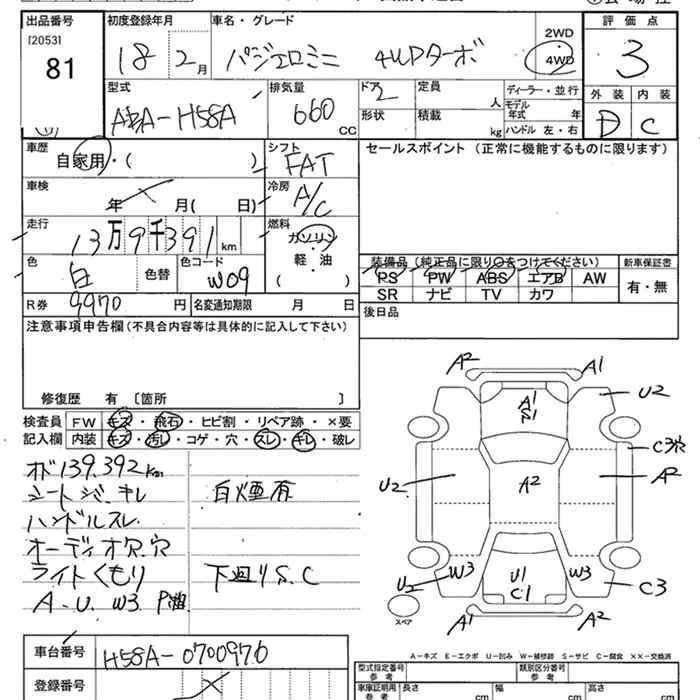 出品番号 初度登録年月 車名・グレード 2WD 4WD 評価点
[2053]
81
18 2月 パジェロミニ 4WDターボ 3
型式 排気量 ドア 2 定員 人 ディーラー・並行 外装 内装
ABA-H58A 660 CC 形状 積載 kg モデル年式 年 D C
ハンドル 左・右
車歴 シフト セールスポイント (正常に機能するものに限ります)
自家用・( ) FAT
車検 冷房
年 月( 日) A/C
走行 燃料
13万9千391km ガソリン
軽・油
( )
色 色替 色コード 装備品 (純正品に限り○をつけてください) 新車保証書
白 W09 PS PW ABS エアB AW 有・無
SR ナビ TV カワ
R券 9970 円 名変通知期限 月 日 後日品
注意事項申告欄 (不具合内容等は具体的に記入して下さい)
修復歴 有 〔箇所 〕
検査員 FW キズ・飛石・ヒビ割・リペア跡・×要
記入欄 内装 キズ・汚レ・コゲ・穴・スレ・キレ・破レ
オド139.392km
シート ジ、キレ 白煙有
ハンドルスレ
オーディオ欠.穴
ライトくもり 下廻りS.C
A.U.W3
A2 A1
A1
S1
U2
U2 A2 A2
W3 W3
U2 U1 C3
C1
スペア A1 A2
A-キズ E-エクボ U-凹み W-補修跡 S-サビ C-腐食 XX-交換済
車台番号 H58A-0700970
登録番号
型式指定番号 参考 類別区分番号 参考
車庫証明用 参考 長さ cm 幅 cm 高さ cm